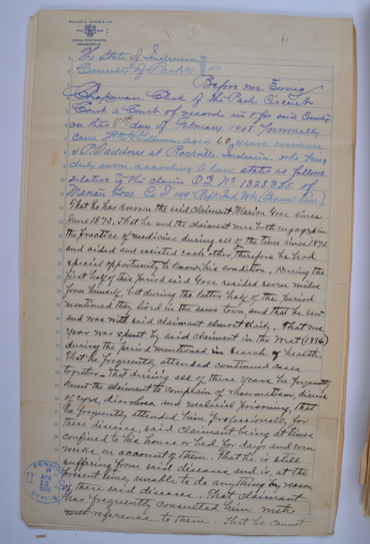 The State of Indiana
County of Parke SS
Before me Ewing
Chapman Clerk of the Parke Circuit
Court a Court of record in & for said County
on the 8th day of February 1908. Personally
came aged 60 years residence
& P.O. address at Rockville Indiana who being
duly sworn according to law states as follows
relative to the claim O.I. No 1328355 of
Marion Goss Co D 149 Regt Ind Vols
That he has known the said claimant Marion Goss since
June 1873. That he and the claimant were both engaged in
the practice of medicine during all of the time since 1873
and aided and assisted each other, therefore he had
special opportunity to know his condition. During the
first half of this period said Goss resided seven miles
from himself, but during the latter half of the period
mentioned they lived in the same town and that he saw
and was with said claimant almost daily. that one
year was spent by said claimant in the West (1886)
during the period mentioned in search of health.
That he frequently attended continued cases
together. That during all of these years he frequently
knew the claimant to complain of rheumatism, disease
of eyes, diarrhoea and malarial poisoning, that
he frequently attended him professionally for
these diseases, said claimant being at times
confined to his house or bed for days and even
weeks on account of them. That he is still
suffering from said diseases and is at the
present time, unable to do anything by reason
of these said diseases. That claimant
has frequently consulted him with
reference to them. That he cannot